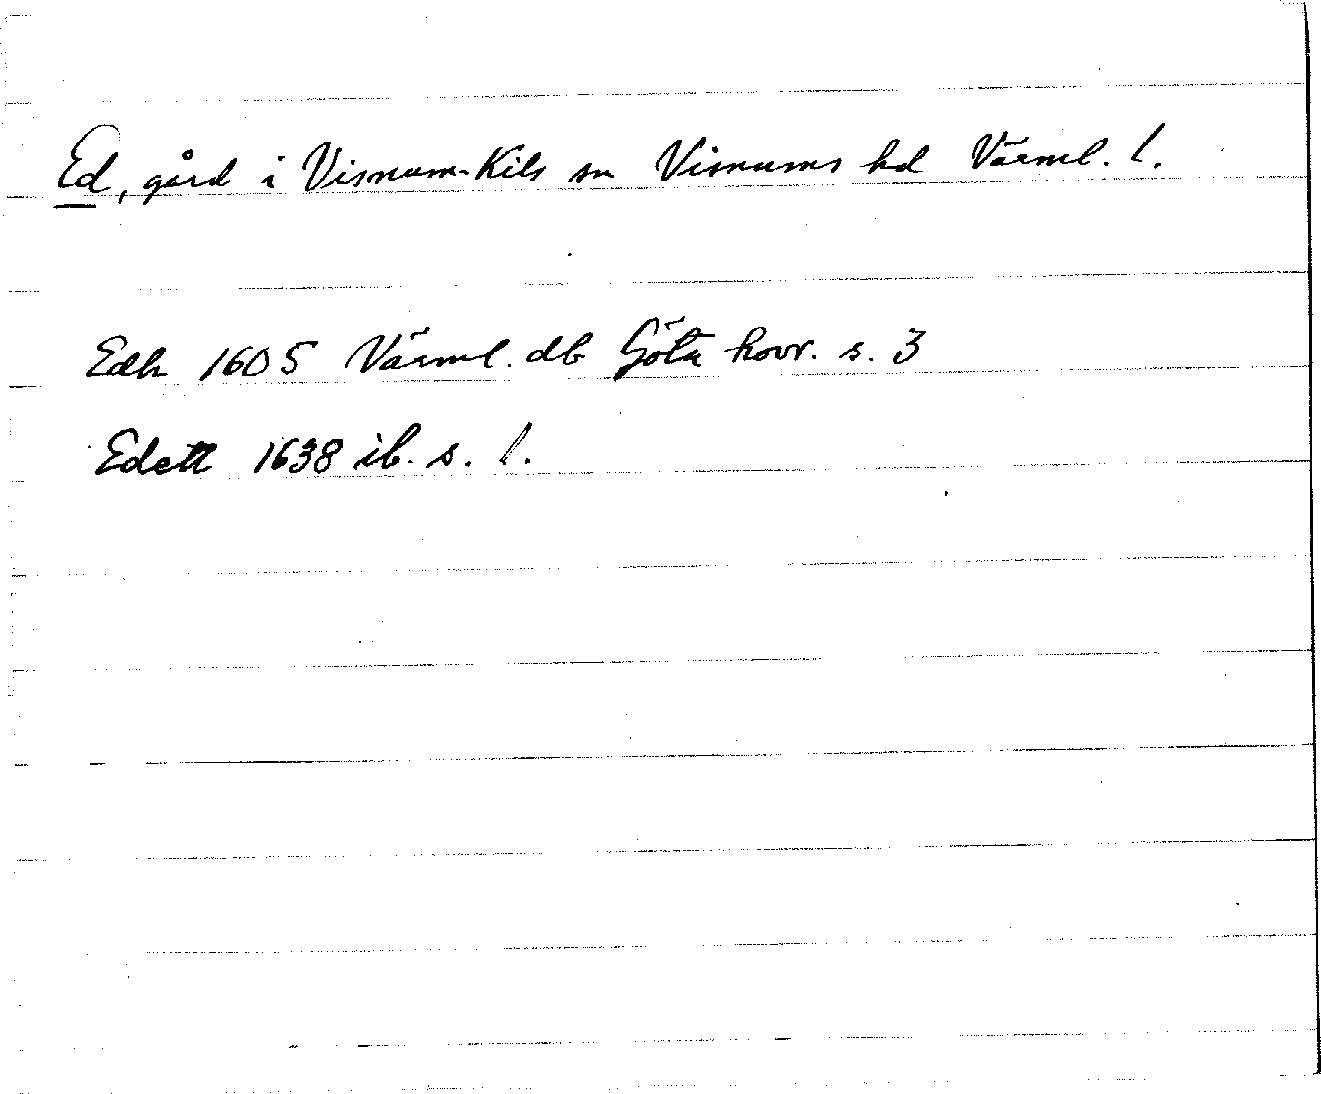 Ed, gård i Visnum-Kils sn Visnums hd Värml. l.
Edh 1605 Värml. db Göta hovr. s. 3
Edett 1638 ib. s. l.